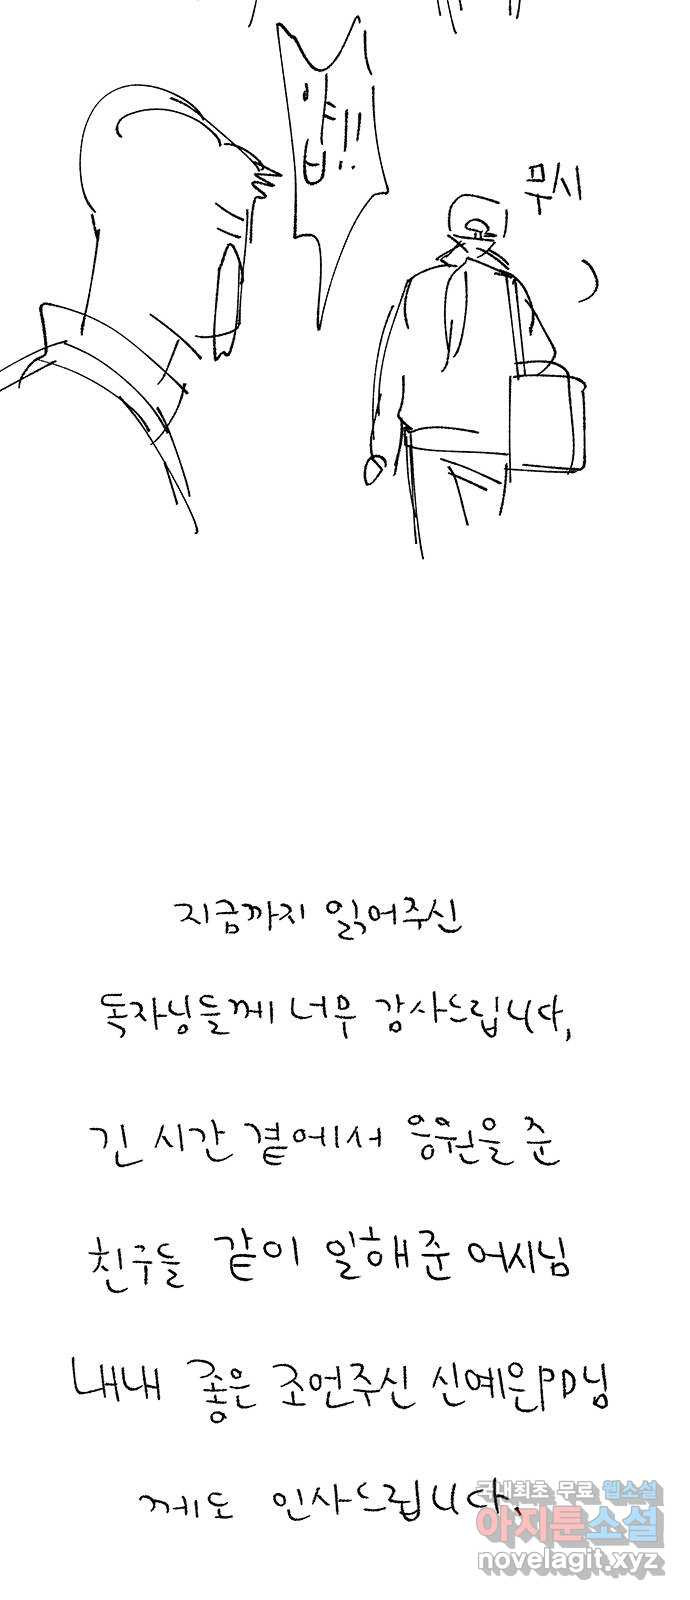 얍!!
무시
지금까지 읽어주신
독자님들께 너무 감사드립니다,
긴 시간 곁에서 응원을 준
친구들 같이 일해준 어시님
내내 좋은 조언주신 신예원PD님
께도 인사드립니다,
국내최초 무료 웹소설
아지툰소설
novelagit.xyz